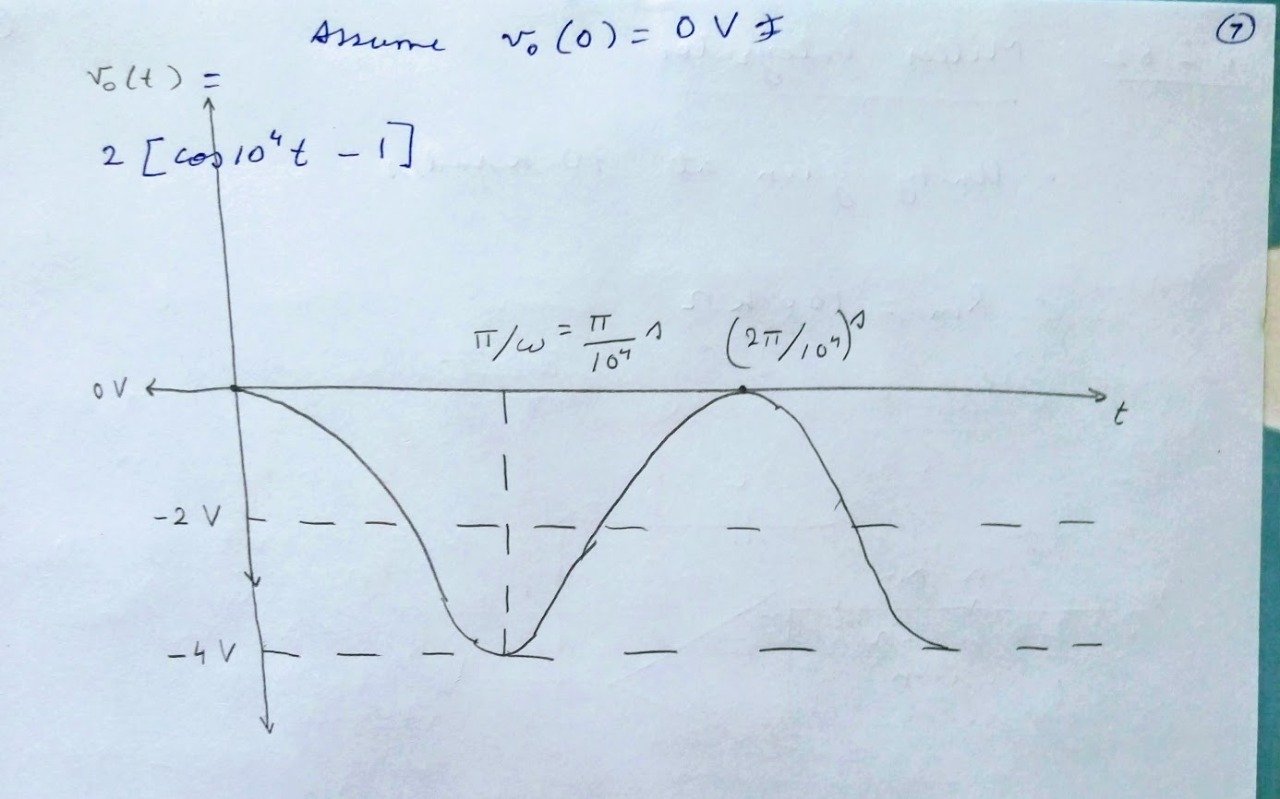 Assume v₀(0) = 0 V
⑦
v₀(t) =
2 [cos10⁴t - 1]
π/ω = π/10⁴ s
(2π/10⁴)s
0 V
t
-2 V
-4 V